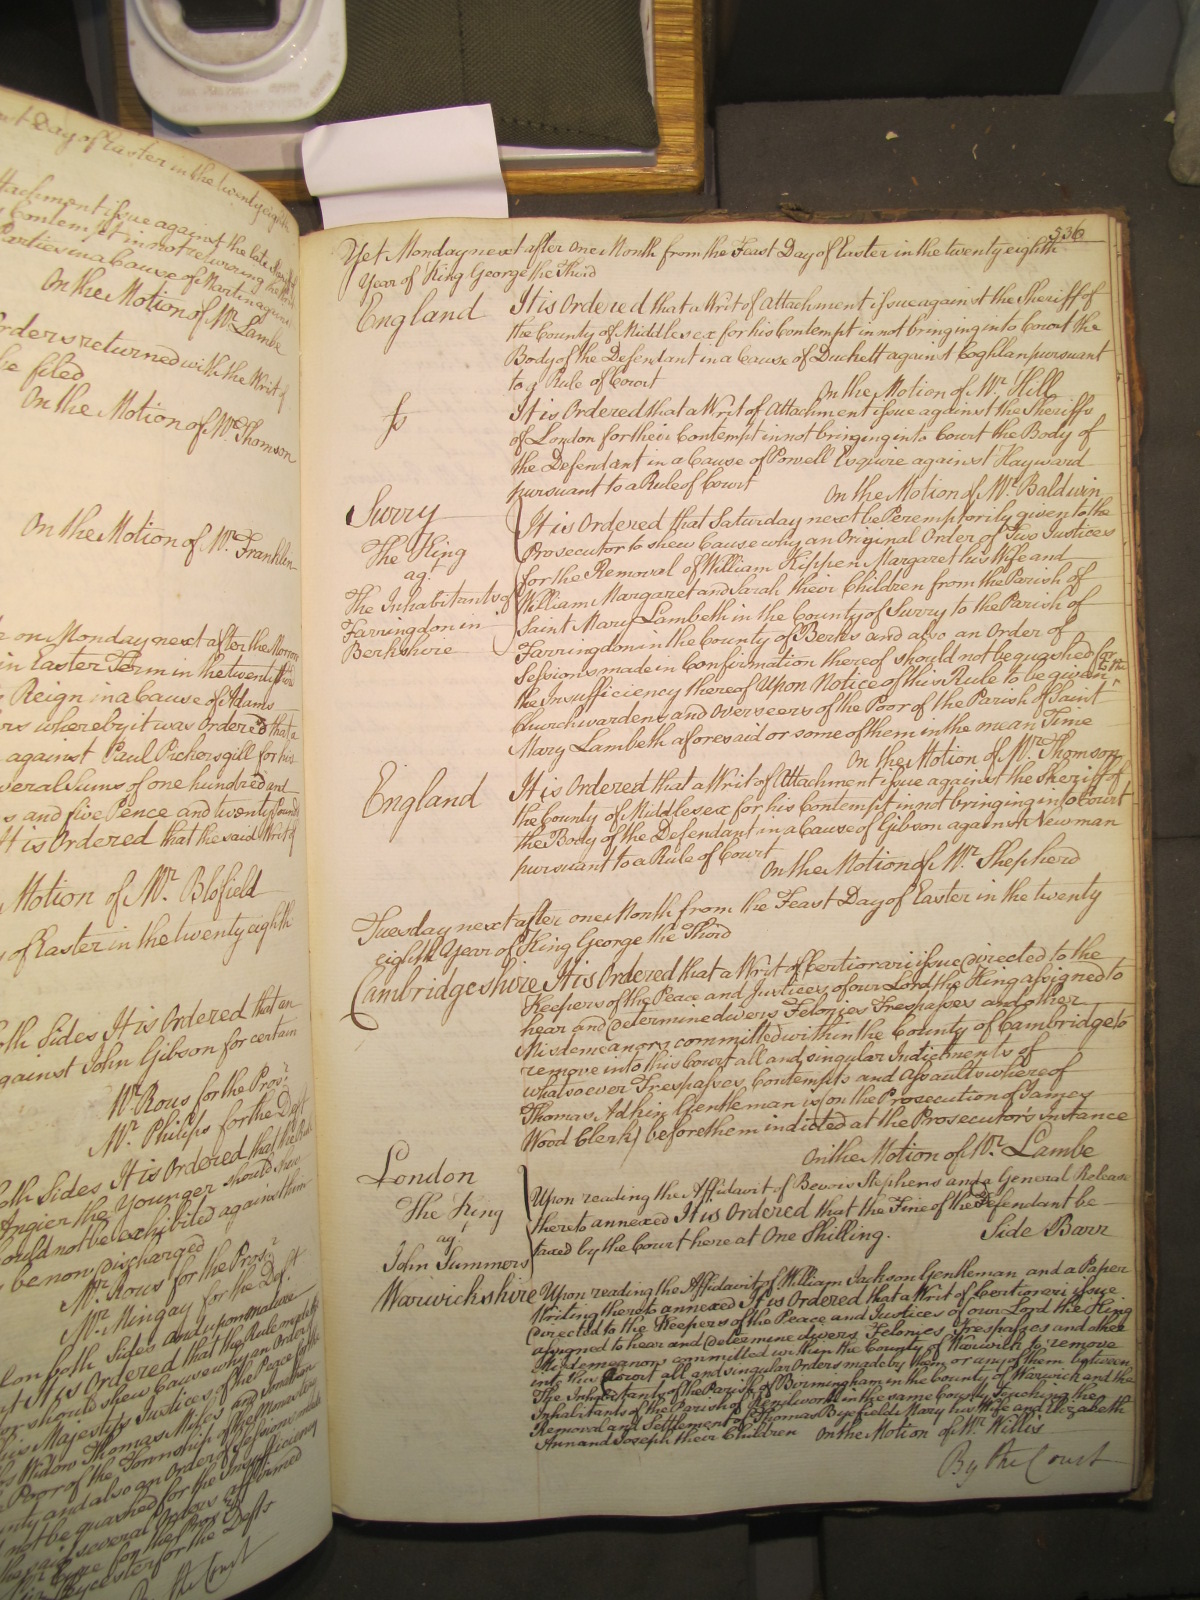 nt Day of Easter in the twenty eighth
ttachment issue against the late Sheriff
Contempt in not returning the
Parties in a Cause of Martin against
On the Motion of Mr. Lambe
Orders returned with the Writ of
be filed
On the Motion of Mr. Thomson
On the Motion of Mr. Franklin
on Monday next after the Morrow
in Easter Term in the twenty
Reign in a Cause of Adams
rs whereby it was Ordered that a
against Paul Pickersgill for his
veral Sums of one hundred and
s and five Pence and twenty Pounds
It is Ordered that the said Writ of
Motion of Mr. Blofield
of Easter in the twenty eighth
oth Sides It is Ordered that an
gainst John Gibson for certain
Mr. Rous for the Prosr.
Mr. Philips for the Deft
oth Sides It is Ordered that the Rule
Angier the Younger should shew
ould not be exhibited against him
be now discharged
Mr. Rous for the Prosr.
Mr. Mingay for the Deft.
l on both Sides and upon mature
It is Ordered that the Rule made
or should shew Cause why an Order
his Majestys Justices of the Peace for the
s Widow Thomas Miles and Jonathan
Poor of the Township of Monks
nty and also an Order of Sessions made
not be quashed for the Insufficiency
the said several Orders affirmed
for the Prosr
Bycester for the Defts
By the Court
536
Yet Monday next after one Month from the Feast Day of Easter in the twenty eighth
Year of King George the Third
England It is Ordered that a Writ of Attachment issue against the Sheriff of
the County of Middlesex for his Contempt in not bringing into Court the
Body of the Defendant in a Cause of Duckett against Coghlan pursuant
to a Rule of Court On the Motion of Mr. Hill
ſs It is Ordered that a Writ of Attachment issue against the Sheriffs
of London for their Contempt in not bringing into Court the Body of
the Defendant in a Cause of Powell Esquire against Hayward
pursuant to a Rule of Court On the Motion of Mr. Baldwin
Surry It is Ordered that Saturday next be Peremptorily given to the
The King Prosecutor to shew Cause why an Original Order of Two Justices
agt. for the Removal of William Kippen Margaret his Wife and
The Inhabitants of William Margaret and Sarah their Children from the Parish of
Farringdon in Saint Mary Lambeth in the County of Surry to the Parish of
Berkshire Farringdon in the County of Berks and also an Order of
Sessions made in Confirmation thereof should not be quashed for
the Insufficiency thereof Upon Notice of this Rule to be given to the
Churchwardens and Overseers of the Poor of the Parish of Saint
Mary Lambeth aforesaid or some of them in the mean Time
On the Motion of Mr. Thomson
England It is Ordered that a Writ of Attachment issue against the Sheriff of
the County of Middlesex for his Contempt in not bringing into Court
the Body of the Defendant in a Cause of Gibson against Newman
pursuant to a Rule of Court On the Motion of Mr. Shepherd
Tuesday next after one Month from the Feast Day of Easter in the twenty
eighth Year of King George the Third
Cambridgeshire It is Ordered that a Writ of Certiorari issue directed to the
Keepers of the Peace and Justices of our Lord the King assigned to
hear and determine divers Felonies Trespasses and other
Misdemeanors committed within the County of Cambridge to
remove into this Court all and singular Indictments of
whatsoever Trespasses Contempts and Assaults whereof
Thomas Adkin Gentleman is (on the Prosecution of James
Wood Clerk) before them indicted at the Prosecutor's Instance
On the Motion of Mr. Lambe
London Upon reading the Affidavit of Bevois Stephens and a General Release
The King thereto annexed It is Ordered that the Fine of the Defendant be
agt. taxed by the Court here at One Shilling. Side Barr
John Summers
Warwickshire Upon reading the Affidavit of William Jackson Gentleman and a Paper
Writing thereto annexed It is Ordered that a Writ of Certiorari issue
directed to the Keepers of the Peace and Justices of our Lord the King
assigned to hear and determine divers Felonies Trespasses and other
Misdemeanors committed within the County of Warwick to remove
into this Court all and singular Orders made by them or any of them between
The Inhabitants of the Parish of Birmingham in the County of Warwick and the
Inhabitants of the Parish of Kenilworth in the same County Touching the
Removal and Settlement of Thomas Byefield Mary his Wife and Elizabeth
Ann and Joseph their Children On the Motion of Mr. Willis
By the Court